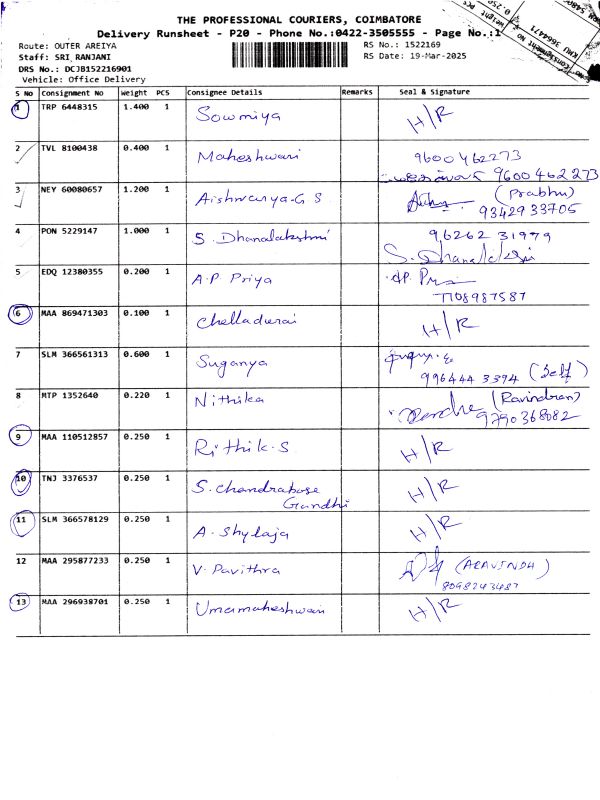 THE PROFESSIONAL COURIERS, COIMBATORE
Delivery Runsheet - P20 - Phone No.:0422-3505555 - Page No.:1
Route: OUTER AREIYA
RS No.: 1522169
Staff: SRI RANJANI
RS Date: 19-Mar-2025
DRS No.: DCJB152216901
Vehicle: Office Delivery
S No Consignment No Weight PCS Consignee Details Remarks Seal & Signature
1 TRP 6448315 1.400 1 Sowmiya H/R
2 TVL 8100438 0.400 1 Maheshwari 9600462273
9600 462 273
3 NEY 60080657 1.200 1 Aishwarya-G S (Prabhu)
9342933705
4 PON 5229147 1.000 1 S. Dhanalakshmi 96262 31979
S. Dhanalakshmi
5 EDQ 12380355 0.200 1 A.P Priya
7708987587
6 MAA 869471303 0.100 1 Chelladurai H/R
7 SLM 366561313 0.600 1 Suganya
996444 3394 (Self)
8 MTP 1352640 0.220 1 Nithika (Ravindran)
9790368082
9 MAA 110512857 0.250 1 Rithik.S H/R
10 TNJ 3376537 0.250 1 S. Chandrabose H/R
Gandhi
11 SLM 366578129 0.250 1 A. Shylaja H/R
12 MAA 295877233 0.250 1 V. Pavithra (ARAVINDH)
8098243487
13 MAA 296938701 0.250 1 Umamaheshwari H/R